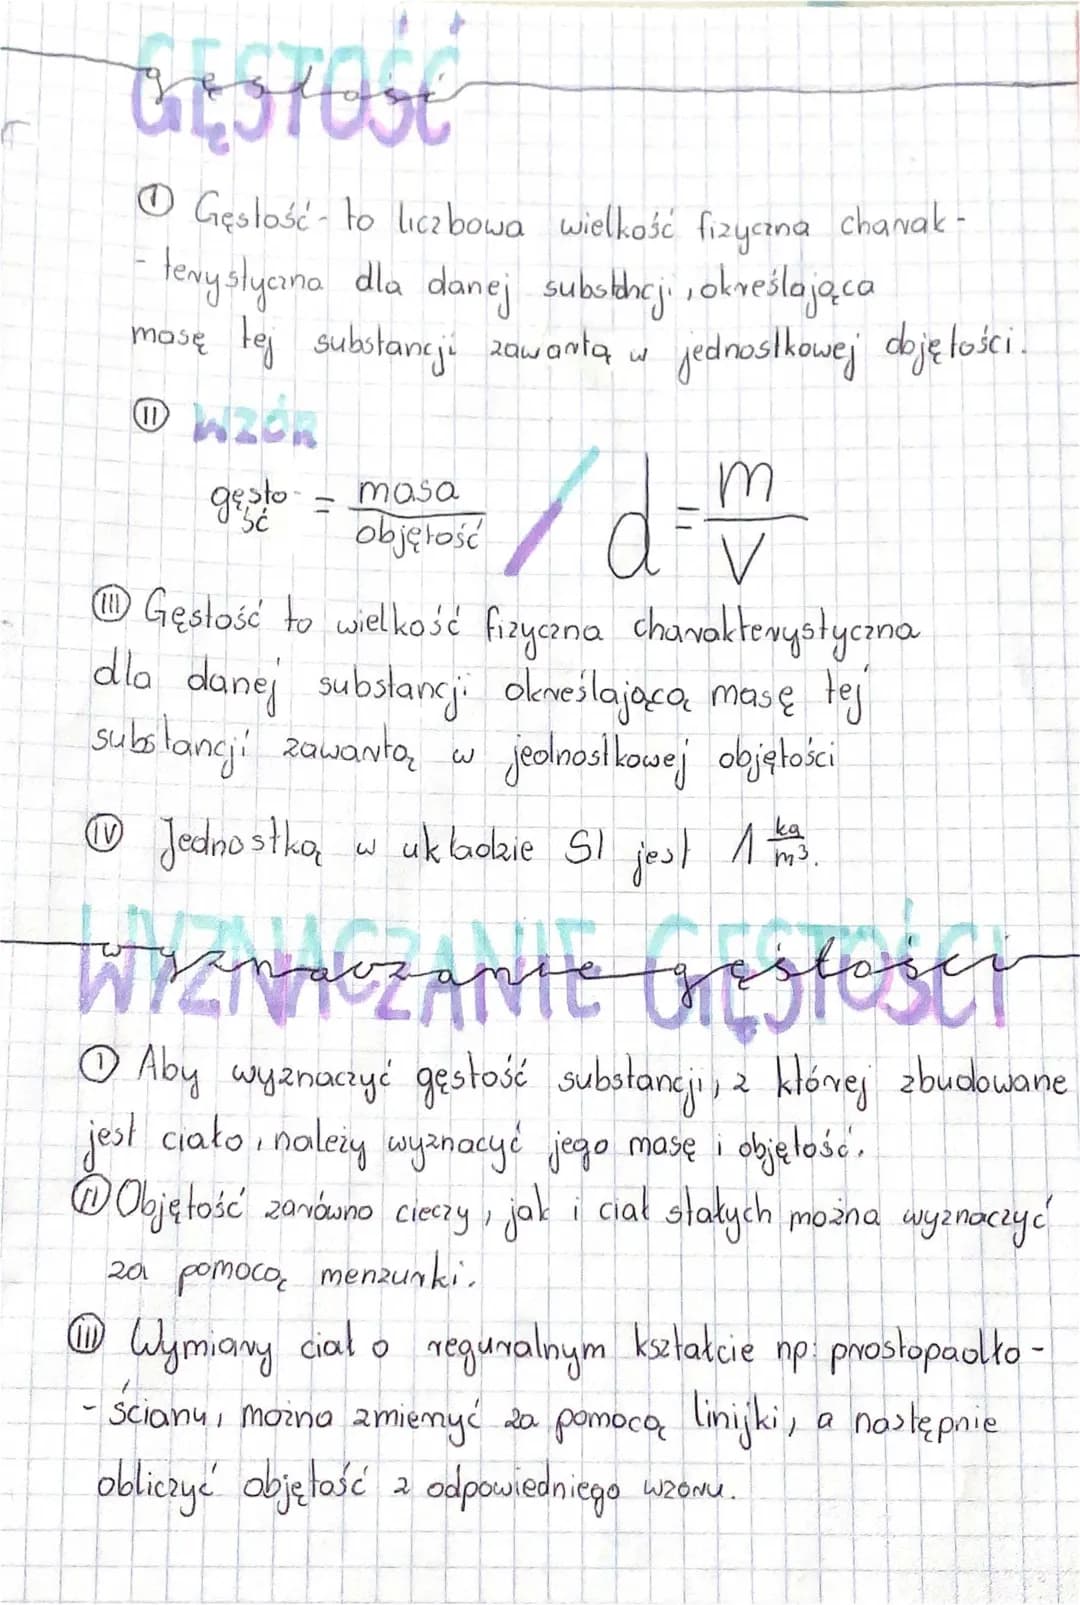 GĘSTOŚĆ
gęstość
I Gęstość - to liczbowa wielkość fizyczna charak-
- terystyczna dla danej substancji, określająca
masę tej substancji zawartą w jednostkowej objętości.
II WZÓR
gęsto- = masa / d = m
ść objętość V
III Gęstość to wielkość fizyczna charakterystyczna
dla danej substancji określającą masę tej
substancji zawartą w jednostkowej objętości
IV Jednostką w układzie SI jest 1 kg/m³.
WYZNACZANIE GĘSTOŚCI
wyznaczanie gęstości
I Aby wyznaczyć gęstość substancji, z której zbudowane
jest ciało, należy wyznacyć jego masę i objętość.
II Objętość zarówno cieczy, jak i ciał stałych można wyznaczyć
za pomocą menzurki.
III Wymiary ciał o reguralnym kształcie np: prostopadło-
- ścianu, można zmierzyć za pomocą linijki, a następnie
obliczyć objętość z odpowiedniego wzoru.